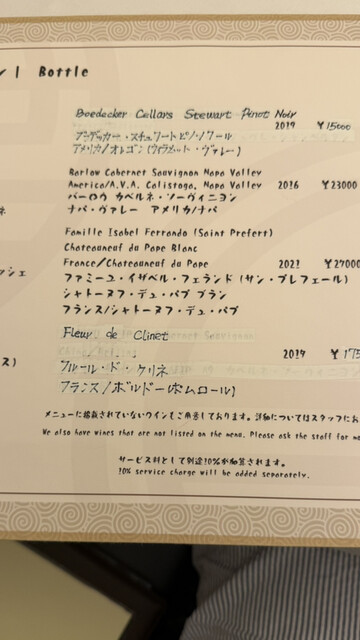 ン | Bottle
Boedecker Cellars Stewart Pinot Noir
2019 ¥15000
アメリカ/オレゴン(ウィラメット・ヴァレー)
Barlow Cabernet Sauvignon Napa Valley
America/A.V.A. Calistoga, Napa Valley 2016 ¥23000
バーロウ カベルネ・ソーヴィニヨン
ナパ・ヴァレー アメリカ/ナパ
ネ
Famille Isabel Ferrando (Saint Prefert)
Chateauneuf du Pape Blanc
France/Chateauneuf du Pape 2021 ¥27000
ッシェ
ファミーユ・イザベル・フェランド (サン・プレフェール)
シャトーヌフ・デュ・パプ ブラン
フランス/シャトーヌフ・デュ・パプ
Fleur de Clinet
2019 ¥175
ス)
フルール・ド・クリネ
フランス/ボルドー(ポムロール)
メニューに掲載されていないワインもご用意しております。詳細についてはスタッフにお
We also have wines that are not listed on the menu. Please ask the staff for mo
サービス料として別途10%が加算されます。
10% service charge will be added separately.